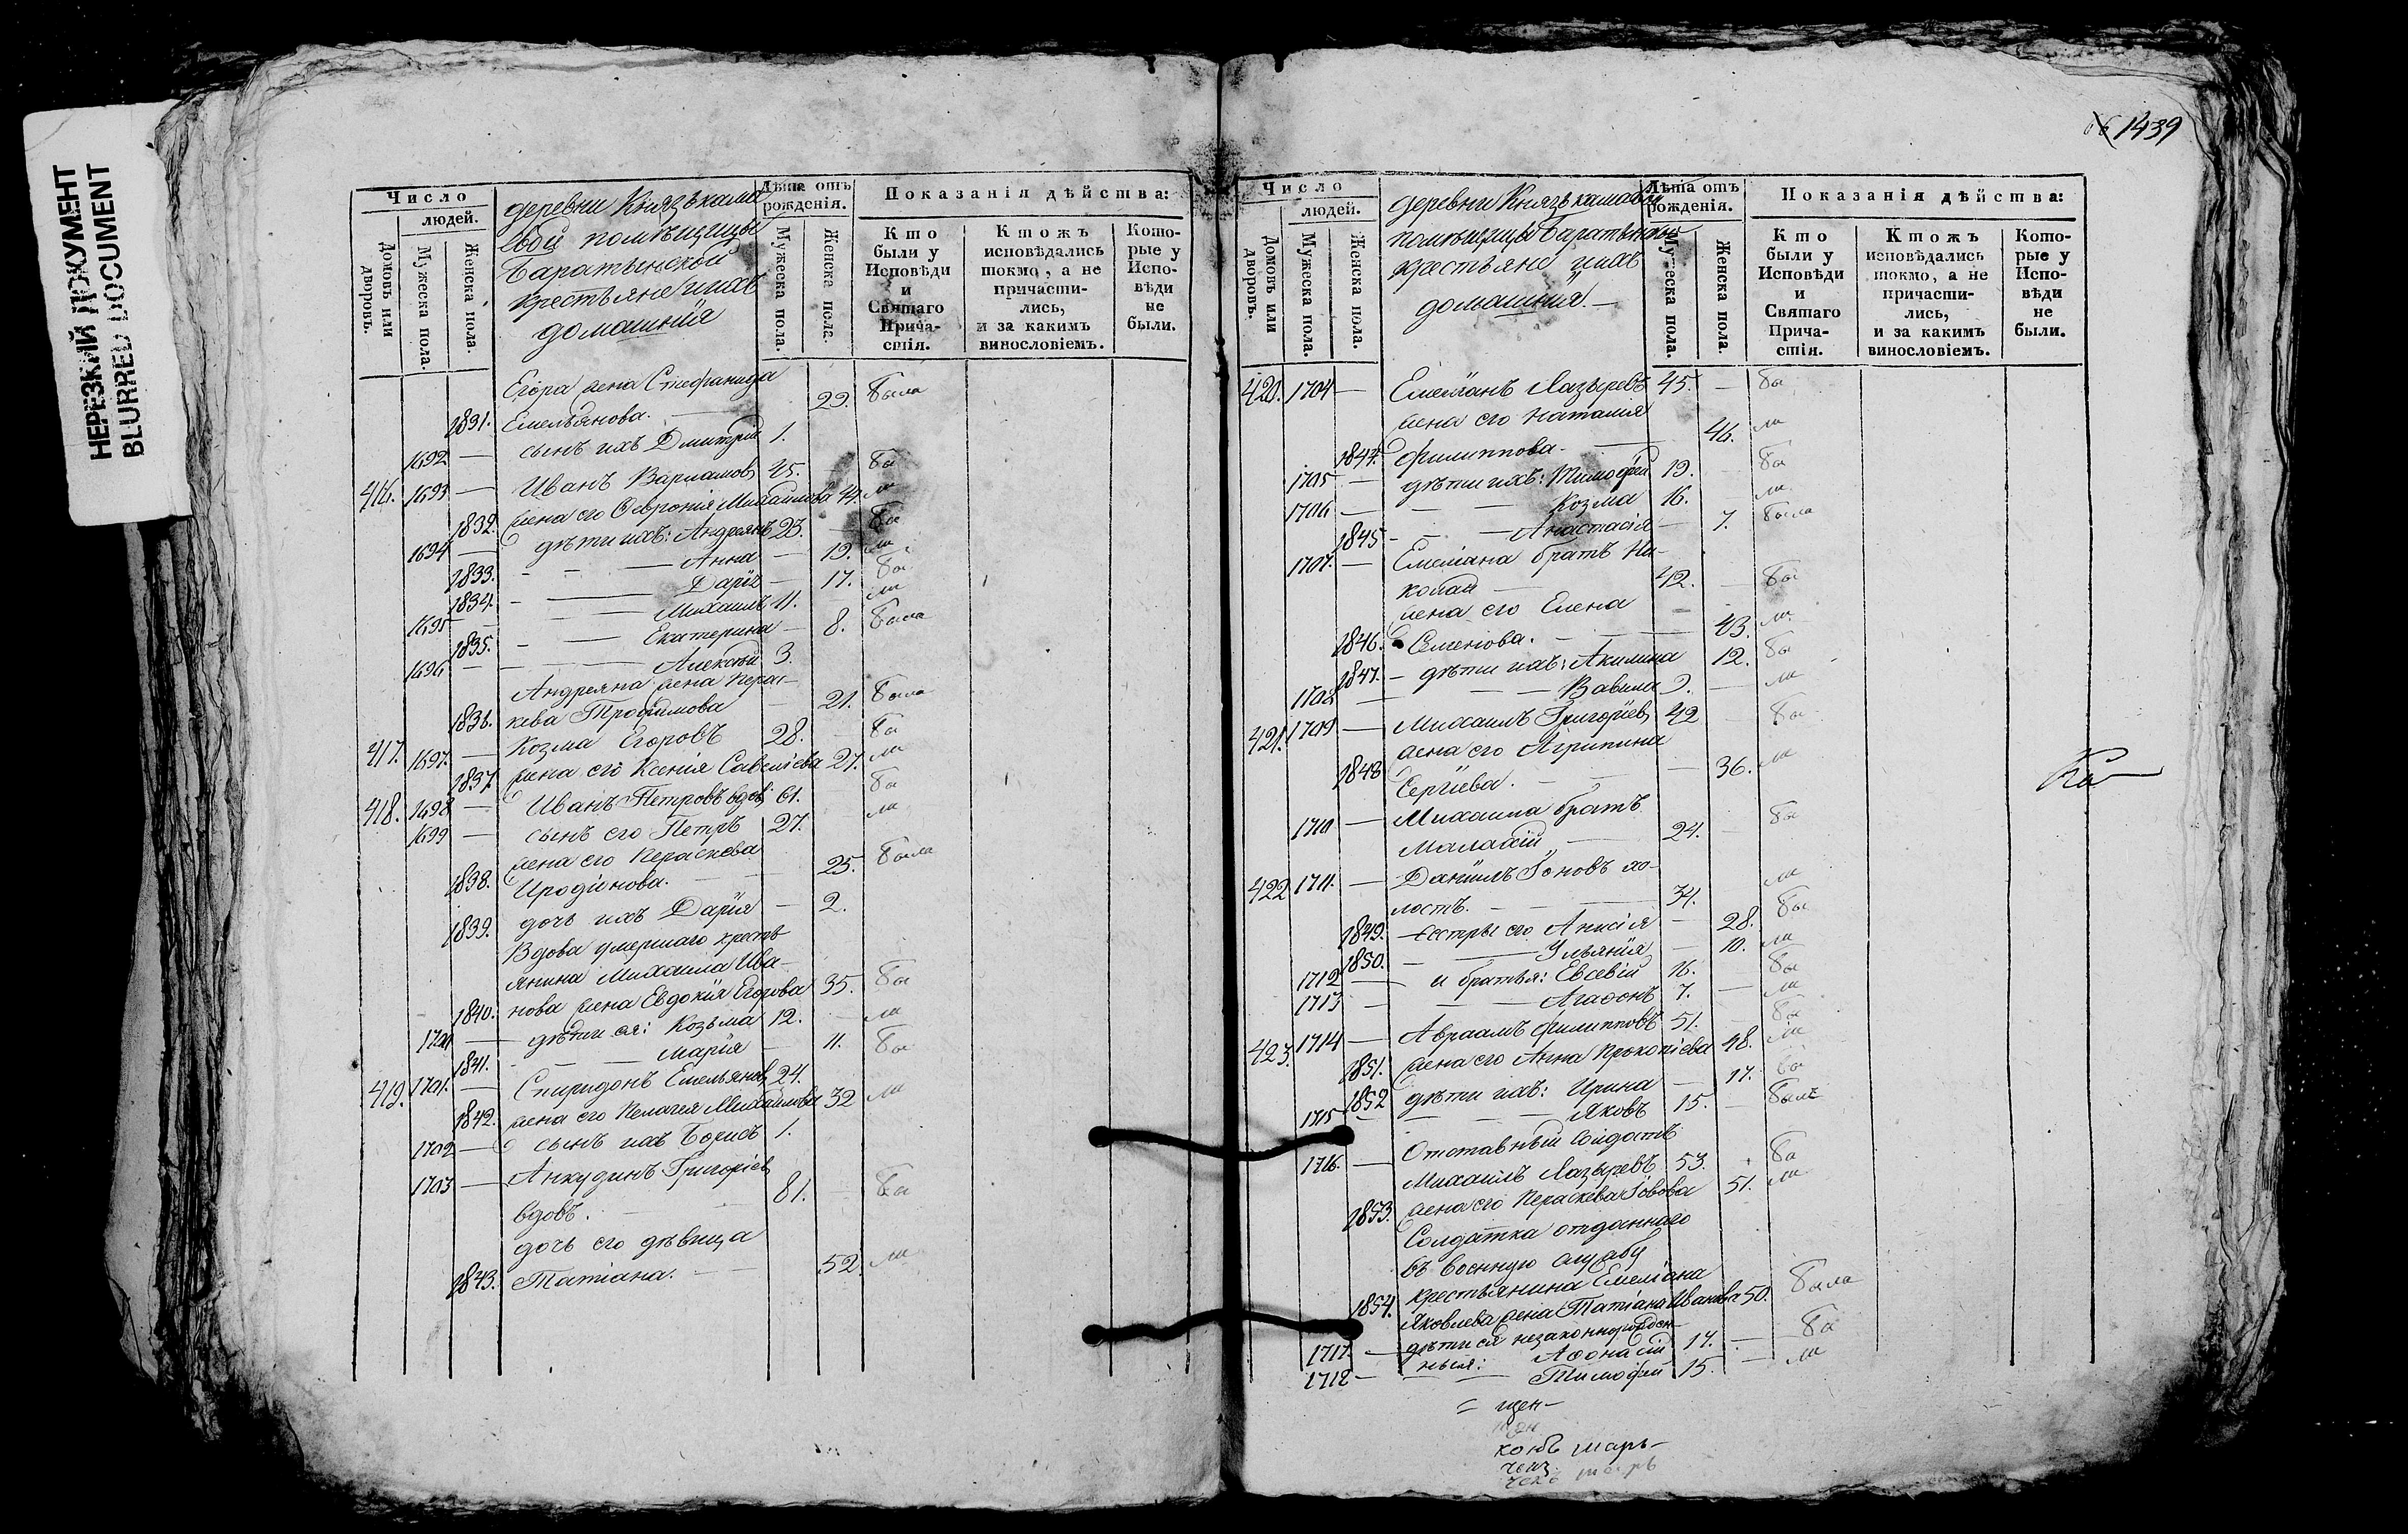 НЕРЕЗКИЙ ДОКУМЕНТ
BLURRED DOCUMENT
Число
людей.
Домовъ или дворовъ.
Мужеска пола.
Женска пола.
деревни Князъкама
евой помѣщицы
Баратынской
крестьяне и ихъ
домашнія
Лѣта отъ рожденія.
Мужеска пола.
Женска пола.
Показанія дѣйства:
Кто были у Исповѣди и Святаго Причастія.
Ктожъ исповѣдались токмо, а не причастились, и за какимъ винословіемъ.
Которые у Исповѣди не были.
Егора жена Стефанида
1831. Емельянова. 29. была
1692 — сынъ ихъ Дмитрій 1.
416. 1693 — Иванъ Варламовъ 45. — бы
1832. жена его Феѵронія Михайлова 44. ли
1694 — дѣти ихъ: Андреянъ 23. — бы
1833. — Анна — 19. ли
1834. — Дарія — 17. бы
1695 — Михаилъ 11. ли
1835. — Екатерина — 8. была
1696 — Алексѣй 3.
Андреяна жена Перас-
1836. кева Трофимова — 21. была
417. 1697. — Козма Егоровъ 28. — бы
1837. жена его Ксенія Савеліева 27. ли
418. 1698 — Иванъ Петровъ вдовъ 61. бы
1699 — сынъ его Петръ 27. ли
жена его Пераскева
1838. Иродіонова. — 25. была
1839. дочь ихъ Дарія — 2.
Вдова умершаго кресть-
янина Михаила Ива-
1840. нова жена Евдокія Егорова 35. бы
1700 — дѣти ея: Козьма 12. — ли
1841. — Марія — 11. бы
419. 1701. — Спиридонъ Емельяновъ 24.
1842. жена его Пелагея Михайлова 32 ли
1702 — сынъ ихъ Борисъ 1.
1703 — Анкудинъ Григоріевъ
вдовъ. 81. — бы
дочь его дѣвица
1843. Татіана. — 52. ли
1439
Число
людей.
Домовъ или дворовъ.
Мужеска пола.
Женска пола.
деревни Князъкамаевой
помѣщицы Баратынской
крестьяне и ихъ
домашнія. —
Лѣта отъ рожденія.
Мужеска пола.
Женска пола.
Показанія дѣйства:
Кто были у Исповѣди и Святаго Причастія.
Ктожъ исповѣдались токмо, а не причастились, и за какимъ винословіемъ.
Которые у Исповѣди не были.
420. 1704 — Емеліанъ Лазыревъ 45. — бы
жена его Наталія
1844. Филиппова. — 46. ли
1705 — дѣти ихъ: Тимофей 19. — бы
1706 — Козма 16. — ли
1845 — Анастасія — 7. была
1707. — Емеліана братъ Ни-
колай — 42. — бы
жена его Елена
1846. Семенова. — 43. ли
1847. — дѣти ихъ: Акилина 12. бы
1708 — Вавила 9. — ли
421. 1709 — Михаилъ Григоріевъ 42 — бы
жена его Агрипина
1848 Сергіева. — 36. ли
1710 — Михаила братъ
Малахій — 24. — бы
422 1711. — Даніилъ Іоновъ хо-
лостъ. — 34. ли
1849. — сестры его Анисія — 28. бы
1850. — Ульянія — 10. ли
1712 — и братья: Евсевій 16. — бы
1713 — Агафонъ 7. — ли
423. 1714 — Авраамъ Филипповъ 51. — бы
1851. жена его Анна Прокопіева 48. ли
1852 дѣти ихъ: Ирина — 17. бы
1715 — Яковъ 15. — былъ
1716. — Отставный солдатъ
Михаилъ Лазыревъ 53. бы
1853. жена его Пераскева Іовова 51. ли
Солдатка отданнаго
въ военную службу
крестьянина Емеліана
1854. Яковлева жена Татіана Иванова 50. была
1717. — дѣти ея незаконнорожден-
ныя: Афонасій 17. — бы
1718 — Тимофей 15. — ли